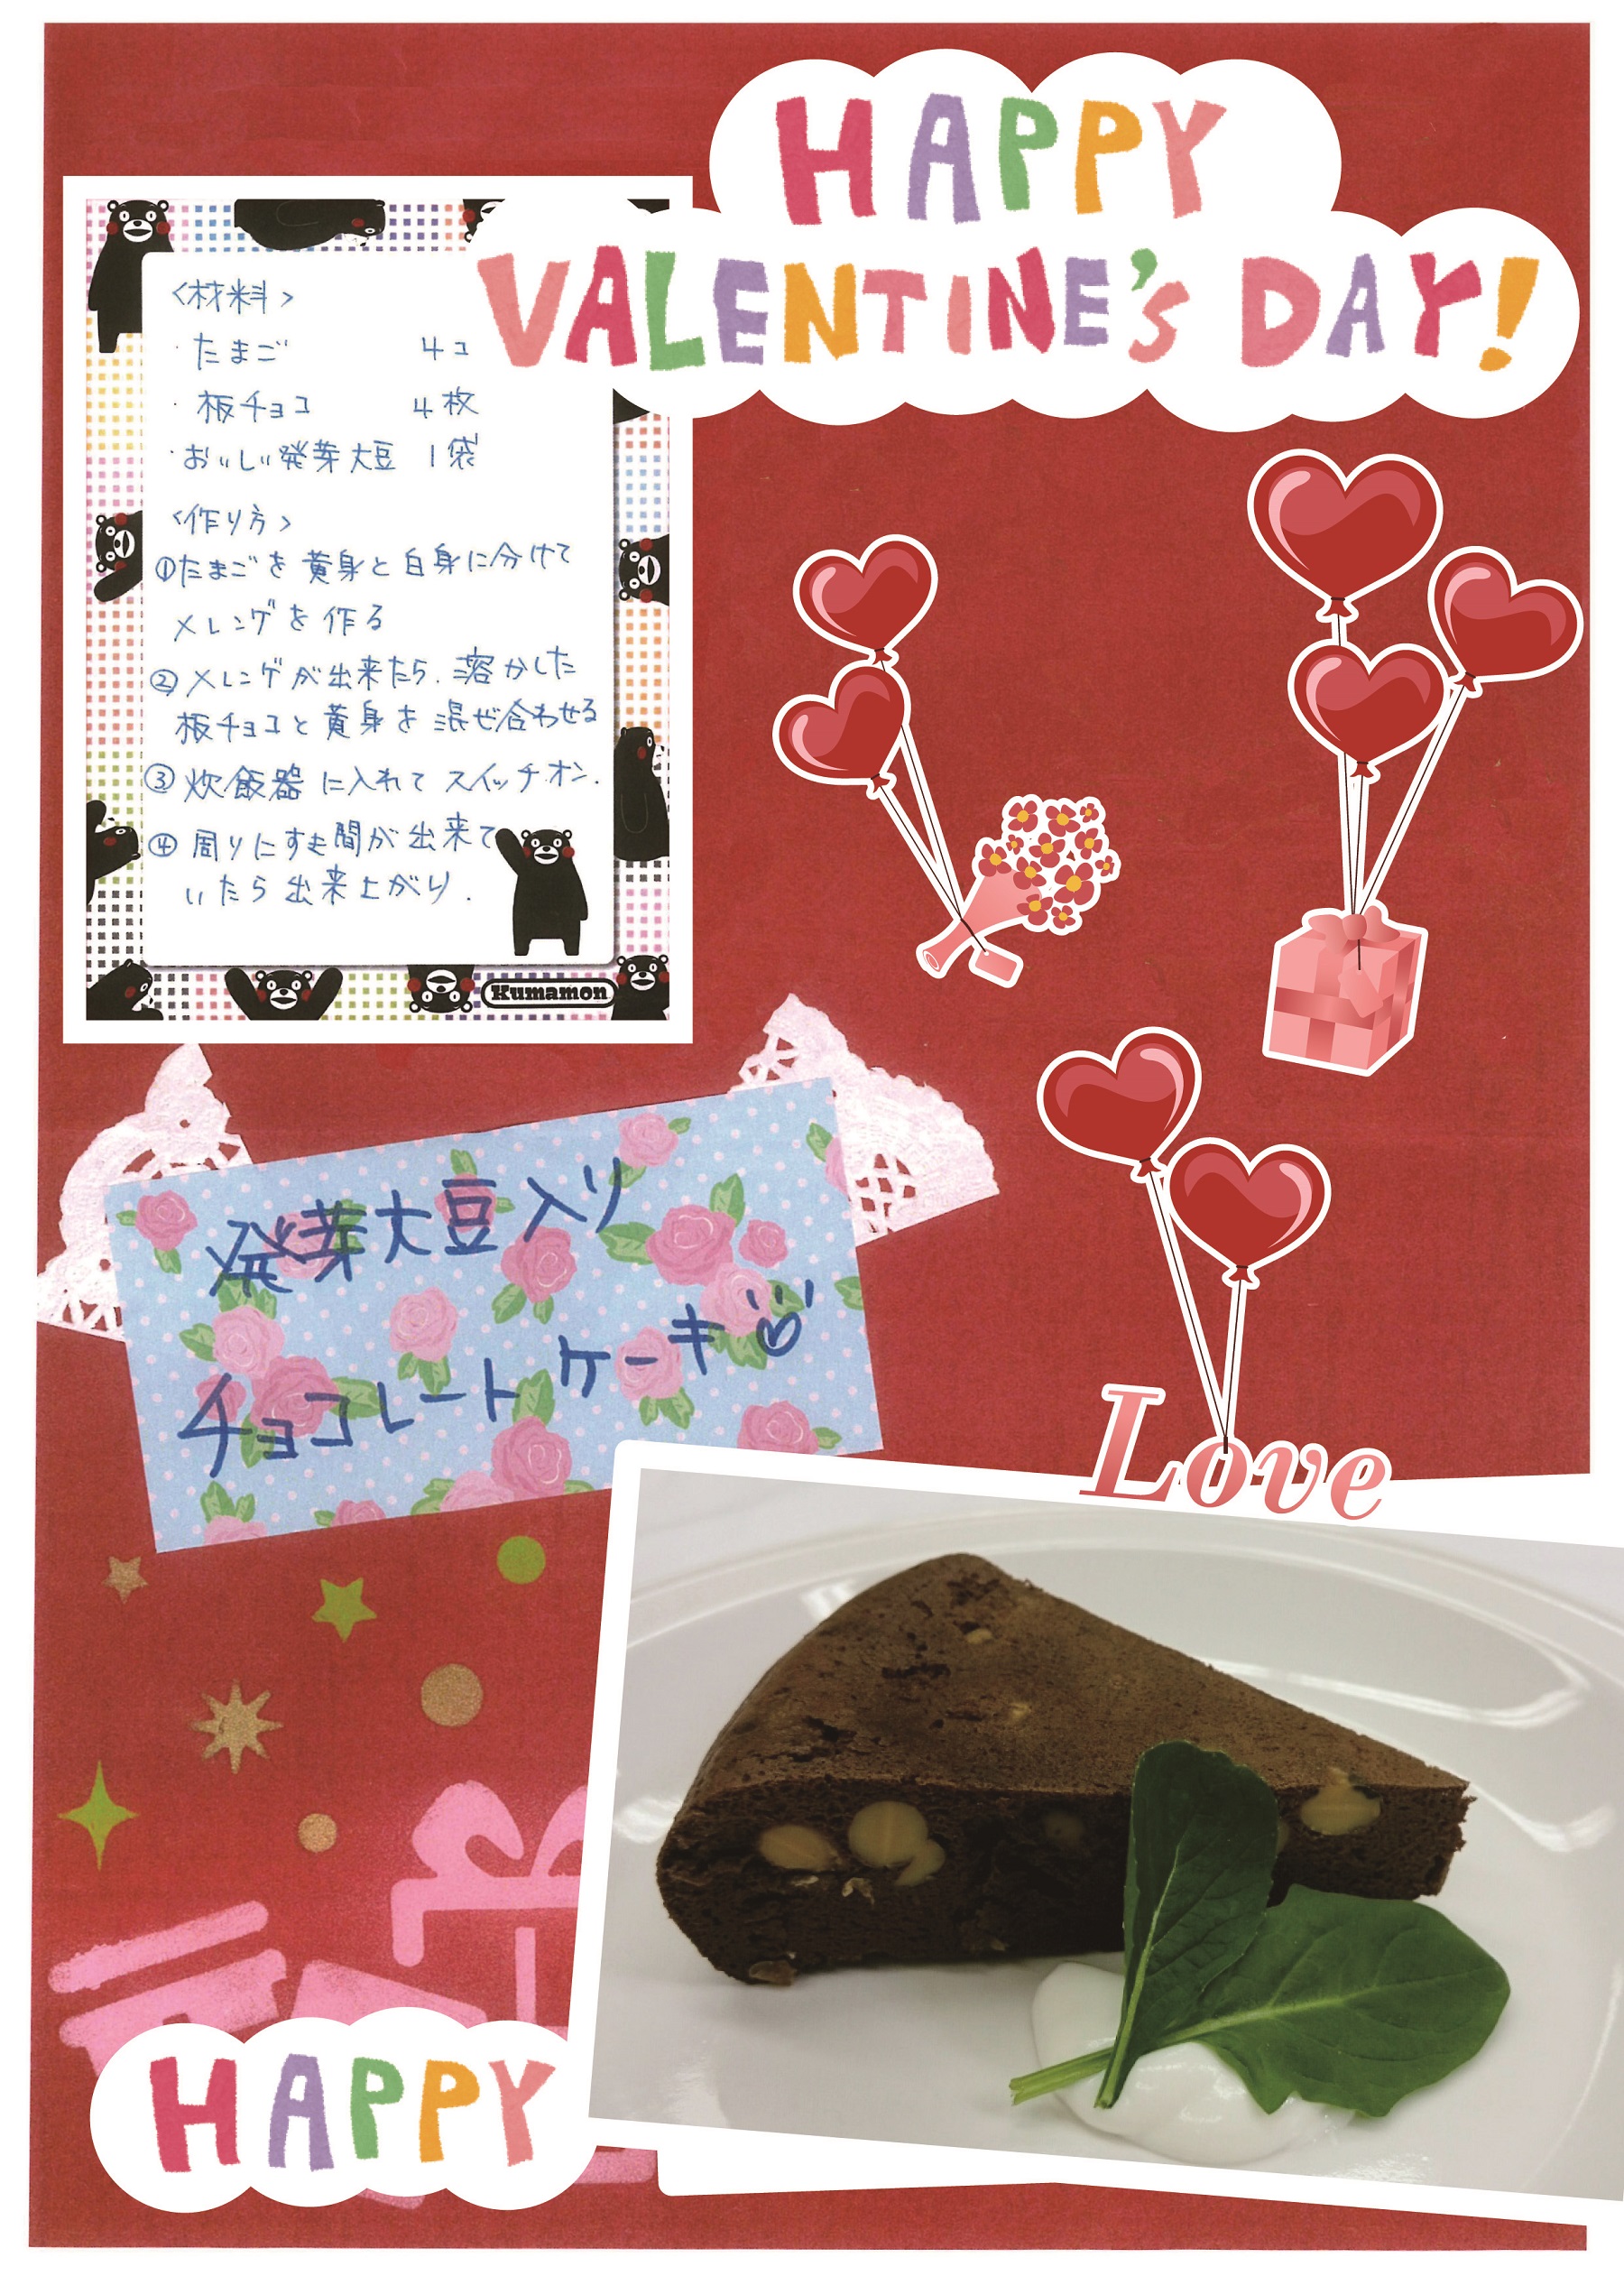 HAPPY
VALENTINE'S DAY!
<材料>
・たまご 4コ
・板チョコ 4枚
・おいしい発芽大豆 1袋
<作り方>
①たまごを黄身と白身に分けて
メレンゲを作る
②メレンゲが出来たら、溶かした
板チョコと黄身を混ぜ合わせる
③炊飯器に入れてスイッチオン.
④周りにすき間が出来て
いたら出来上がり.
Kumamon
発芽大豆入り
チョコレートケーキ
Love
HAPPY